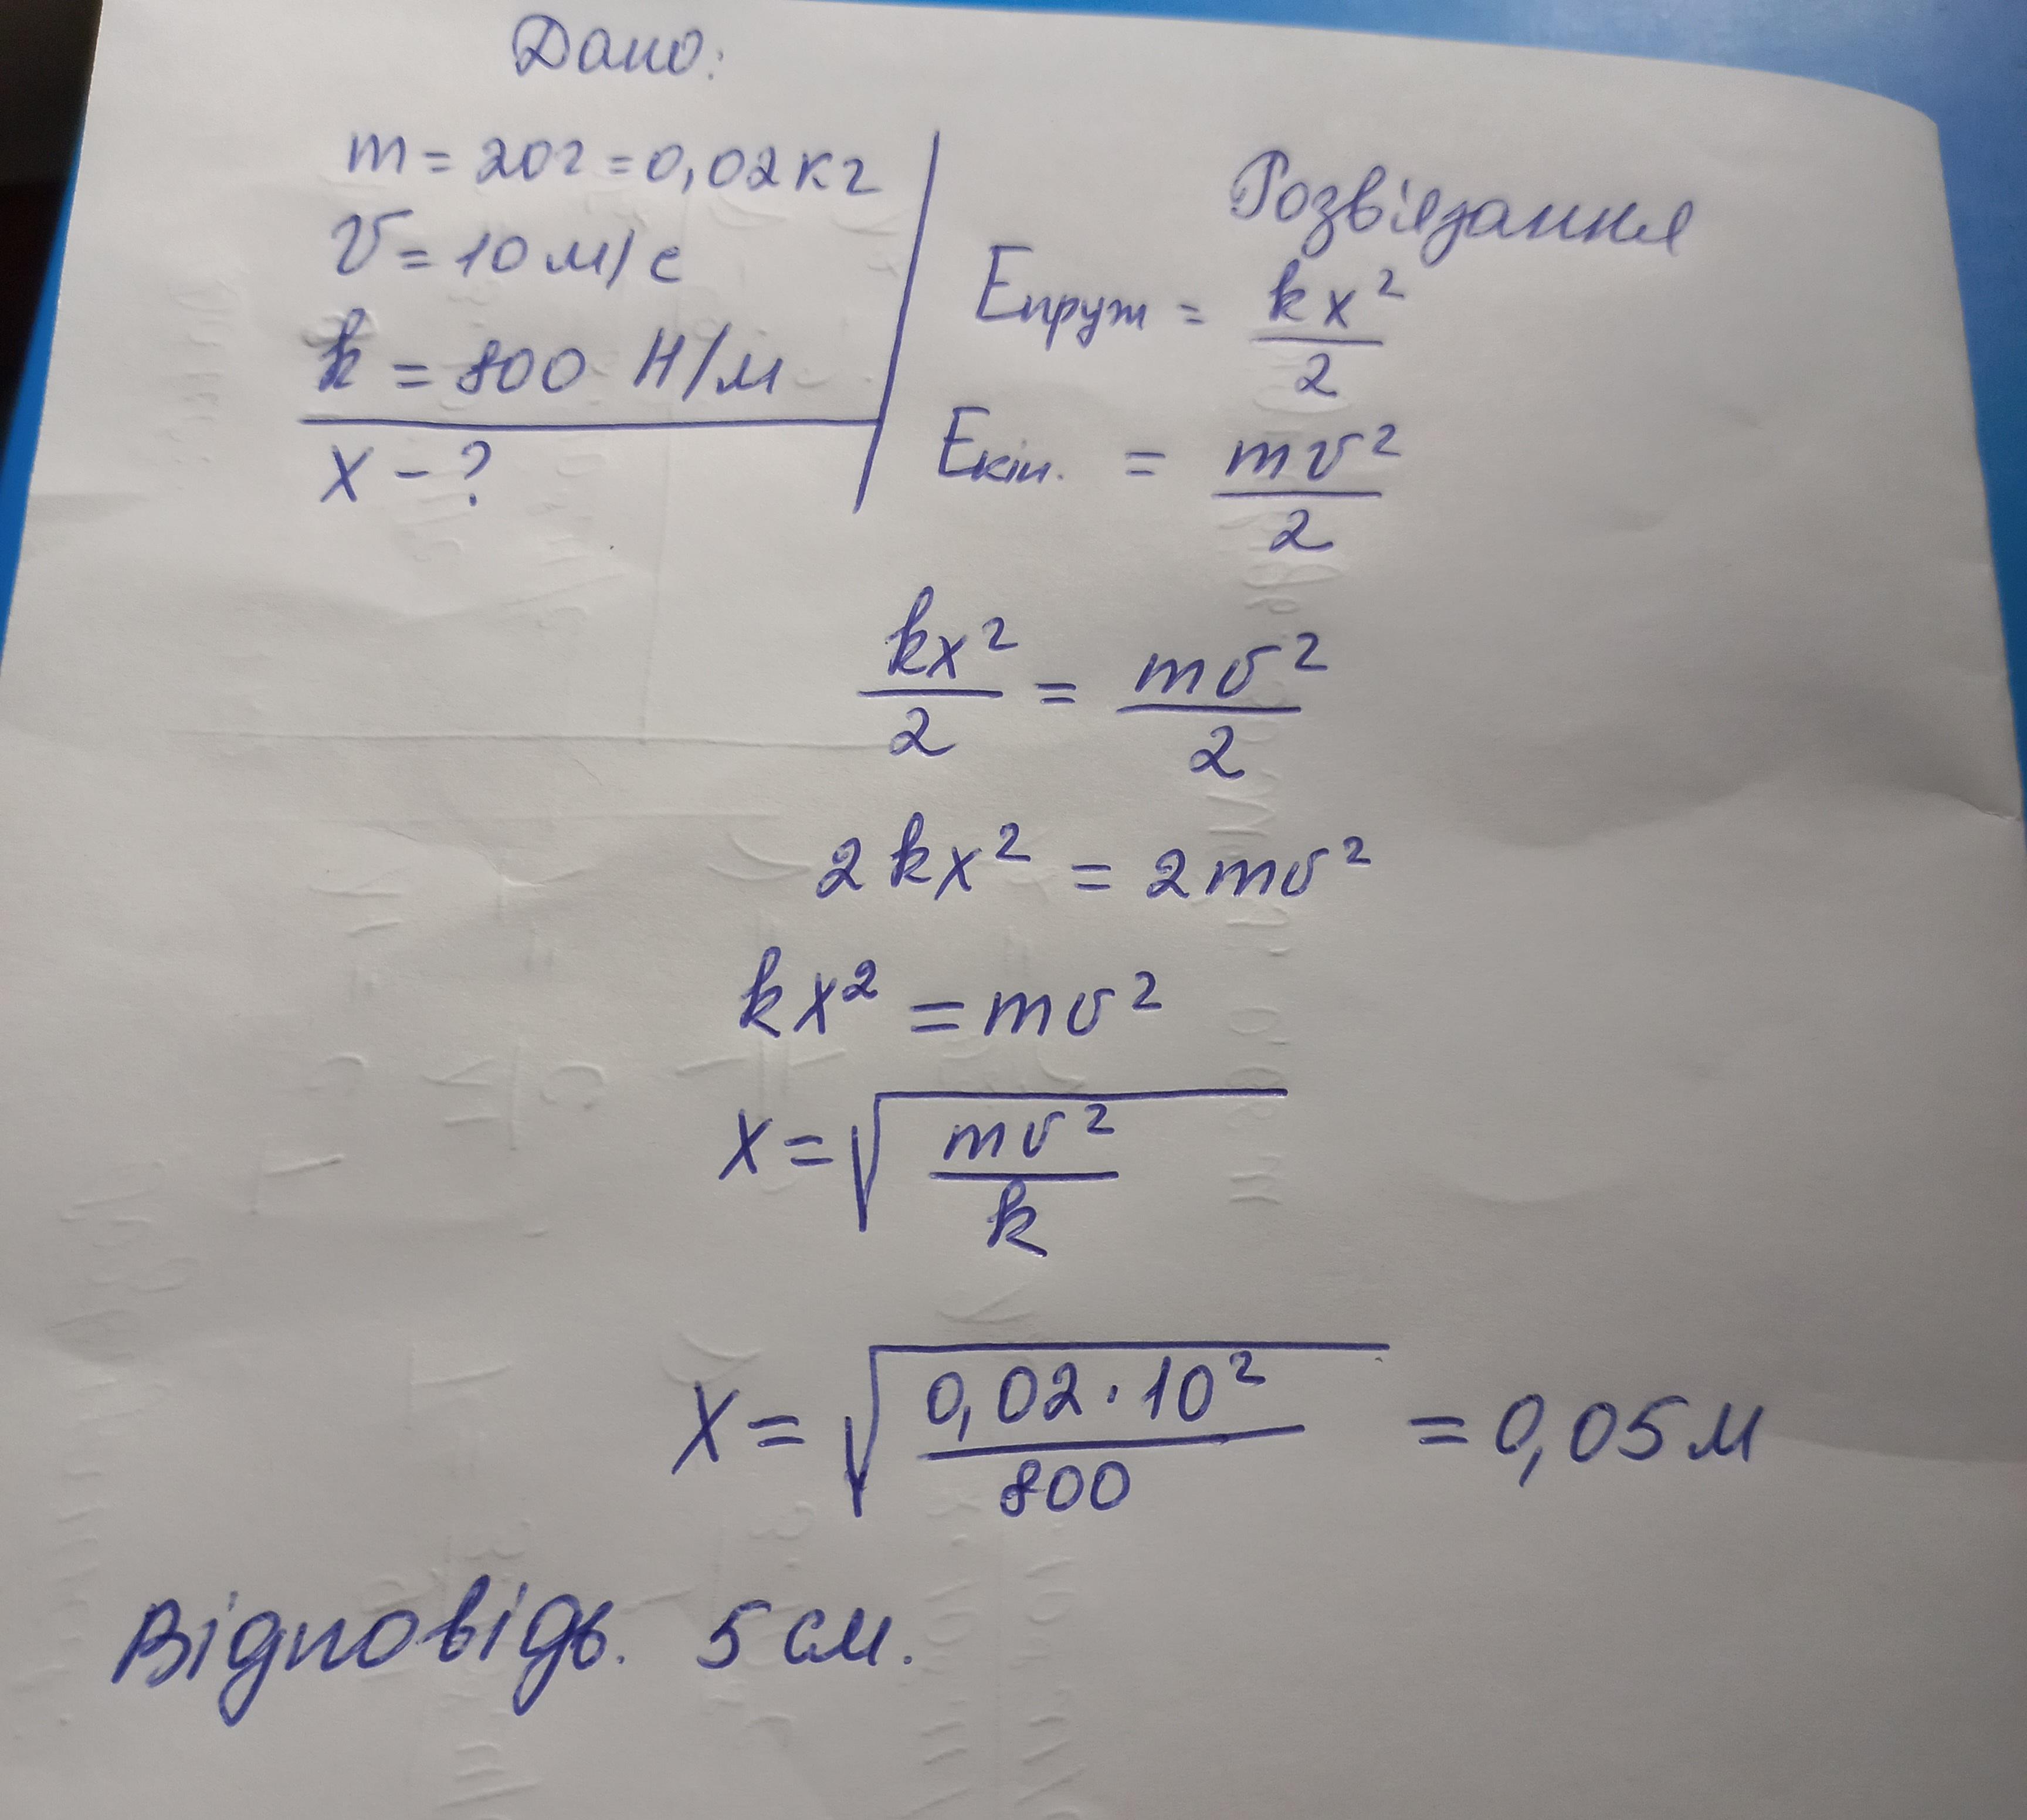 Дано:
m = 20г = 0,02кг
v = 10 м/с
k = 800 Н/м
x - ?
Розв'язання
Eпруж = kx²/2
Eкін. = mv²/2
kx²/2 = mv²/2
2kx² = 2mv²
kx² = mv²
x = √(mv²/k)
x = √(0,02·10²/800) = 0,05м
Відповідь. 5 см.